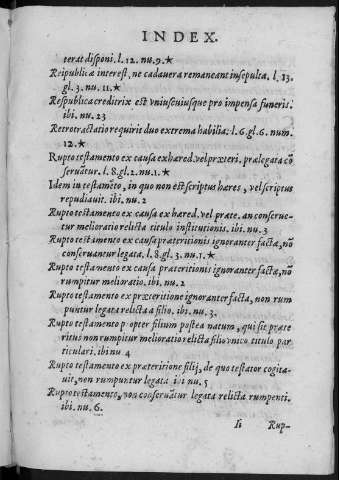 INDEX.
terat disponi. l. 12. nu. 9. ★
Reipublicæ interest, ne cadauera remaneant insepulta. l. 13.
gl. 3. nu. 11. ★
Respublica creditrix est vniuscuiusque pro impensa funeris.
ibi. nu. 23
Retrotractatio requirit duo extrema habilia. l. 6. gl. 6. num.
12. ★
Rupto testamento ex causa exhæred. vel præteri. prælegata cō
seruātur. l. 8. gl. 2. nu. 1. ★
Idem in testamēto, in quo non est scriptus hæres, vel scriptus
repudiauit. ibi. nu. 2
Rupto testamento ex causa exhæred. vel præte. an conserue-
tur melioratio relicta titulo institutionis. ibi. nu. 3
Rupto testamento ex causa præteritionis ignoranter factæ, nō
conseruantur legata. l. 8. gl. 3. nu. 1. ★
Rupto testamento ex causa præteritionis ignoranter factæ, nō
rumpitur melioratio. ibi. nu. 2
Rupto testamento ex præteritione ignoranter facta, non rum
puntur legata relicta a filio. ibi. nu. 3.
Rupto testamento p opter filium postea natum, qui sit præte
ritus non rumpitur melioratio relicta filio vnico titulo par
ticulari. ibi nu 4
Rupto testamento ex præteritione filij, de quo testator cogita-
uit, non rumpuntur legata ibi nu. 5
Rupto testamento, non conseruātur legata relicta rumpenti.
ibi. nu. 6.
Ii Rup-